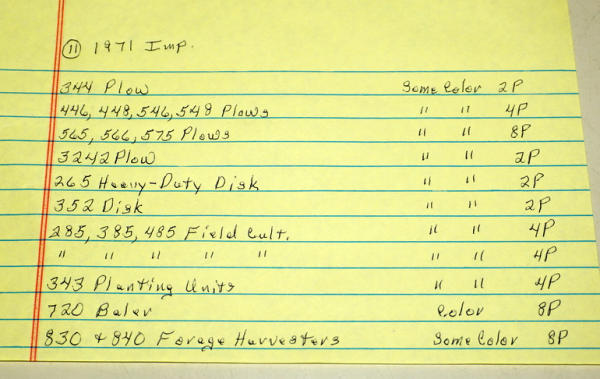 (11) 1971 Imp.
344 Plow Some Color 2P
446, 448, 546, 548 Plows " " 4P
565, 566, 575 Plows " " 8P
3242 Plow " " 2P
265 Heavy-Duty Disk " " 2P
352 Disk " " 2P
285, 385, 485 Field Cult. " " 4P
" " " " " " " 4P
343 Planting Units " " 4P
720 Baler Color 8P
830 + 840 Forage Harvesters Some Color 8P